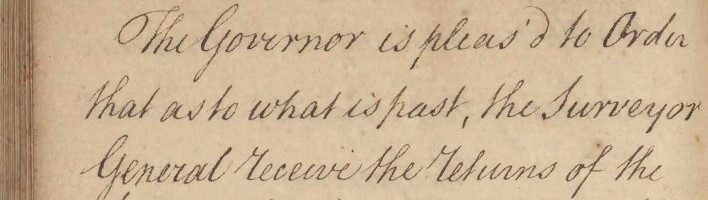 The Governor is pleas'd to Order
that as to what is past, the Surveyor
General receive the returns of the